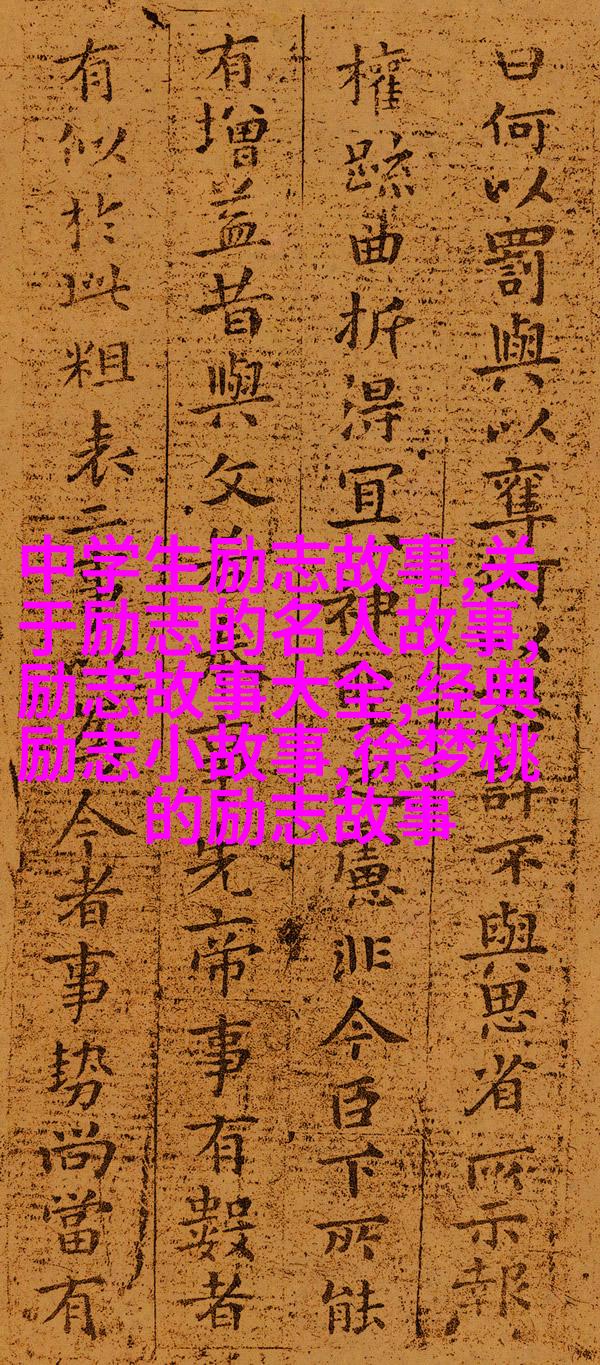 曰何以罰與以奪何以許不與思省所示報
權疏曲折得冝神慮非今臣下所能
有增益昔與文事先帝事有數者
有似於此粗表二今者事勢尚當有
中学生励志故事,关
于励志的名人故事,
励志故事大全,经典
励志小故事,徐梦桃
的励志故事